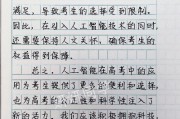 满足，导致考生的选择受到限制。
因此，在引入人工智能技术的同时，
还需要保持人文关怀，确保考生的
权益得到保障。
总之，人工智能在高考中的应
用为考生提供了更多的便利和选择，
也为高考的公正性和科学性注入了
新的活力。我们应该积极拥抱科技，